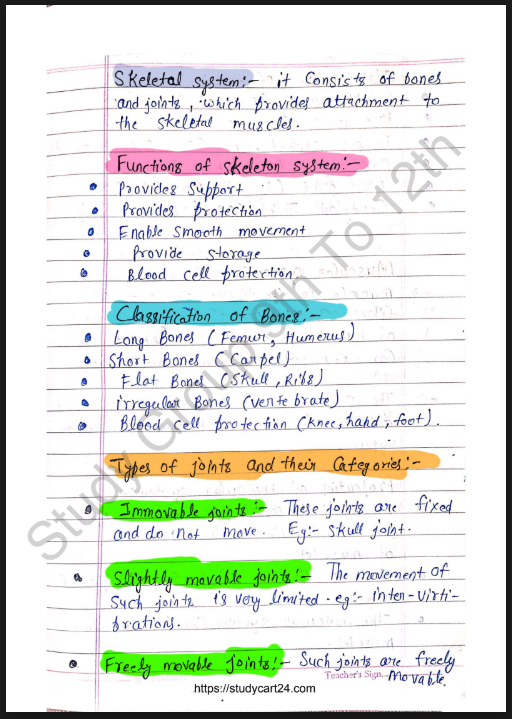 Skeletal system:- it consists of bones
and joints, which provides attachment to
the skeletal muscles.
Functions of skeleton system:-
Provides Support
Provides protection
Enable smooth movement
Provide storage
Blood cell protection.
Classification of Bones:-
Long Bones (Femur, Humerus)
Short Bones (Carpel)
Flat Bones (Skull, Ribs)
irregular Bones (vertebrate)
Blood cell protection (knee, hand, foot).
Types of joints and their Categories:-
Immovable joints:- These joints are fixed
and do not move. Eg:- skull joint.
Slightly movable joints:- The movement of
Such joints is very limited. eg:- inter-virti-
brations.
Freely movable joints:- Such joints are freely
movable.
Teacher's Sign.
https://studycart24.com
Study Group 9th To 12th